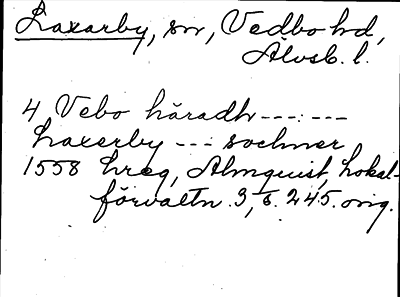 Laxarby, sn, Vedbo hd,
Älvsb. l.
4 Vebo häradh --- : ---
Laxerby --- sochner
1558 hreg, Almquist, Lokal-
förvaltn. 3, s. 245. orig.